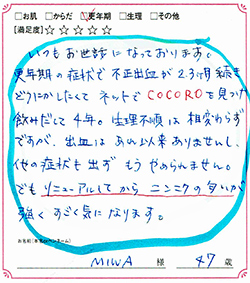 □お肌 □からだ ☑更年期 □生理 □その他
[満足度]☆☆☆☆☆
いつもお世話になっております。
更年期の症状で不正出血が2.3ヶ月続き
どうにかしたくてネットでCOCOROを見つけ
飲みだして4年。生理不順は相変わらず
ですが、出血はあれ以来ありませんし、
他の症状も出ずもうやめられません。
でもリニューアルしてからニンニクの匂いが
強くすごく気になります。
お名前(匿名orペンネーム)
MIWA 様 47歳